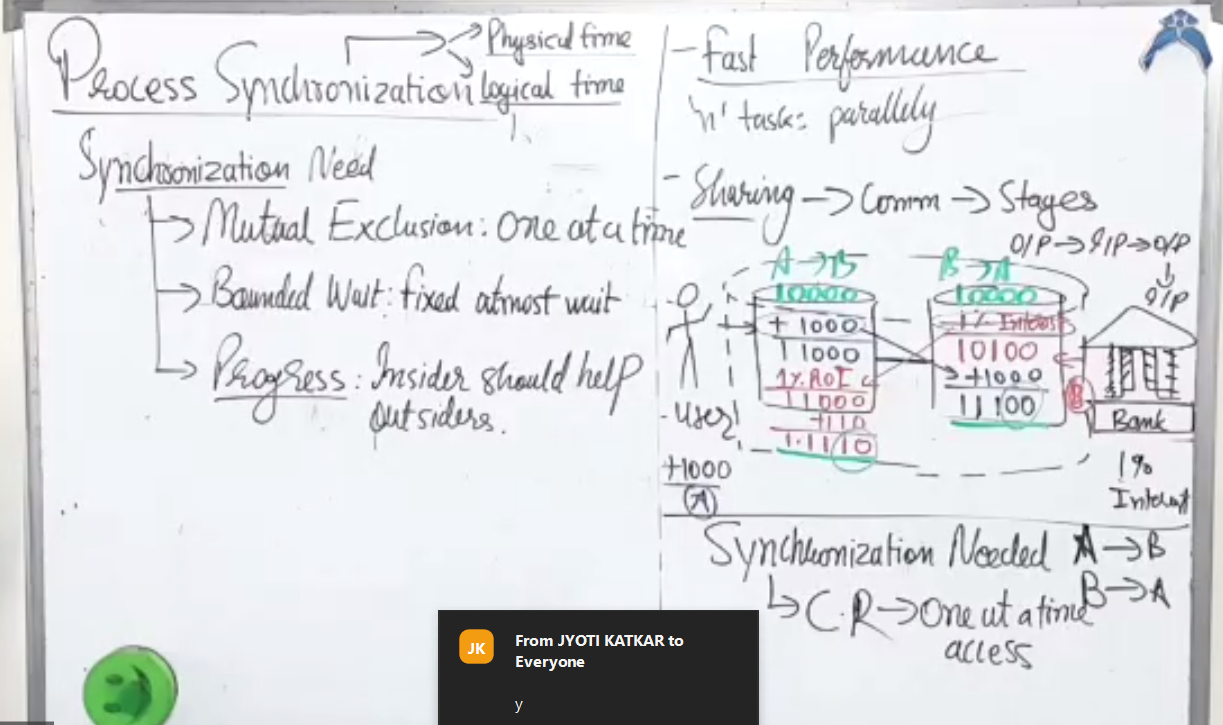 Process Synchronization
Physical time
logical time
Synchronization Need
Mutual Exclusion: One at a time
Bounded Wait: fixed atmost wait
Progress: Insider should help
outsiders.
- Fast Performance
'n' task: parallely
- Sharing → Comm → Stages
O/P → I/P → O/P
I/P
A → B
10000
+ 1000
11000
1% RoI
11000
+110
11110
B → A
10000
1% Interest
10100
+1000
11100
- User
+1000
A
B
Bank
1%
Interest
Synchronization Needed A → B
B → A
C.R → One at a time
access
JK
From JYOTI KATKAR to
Everyone
y